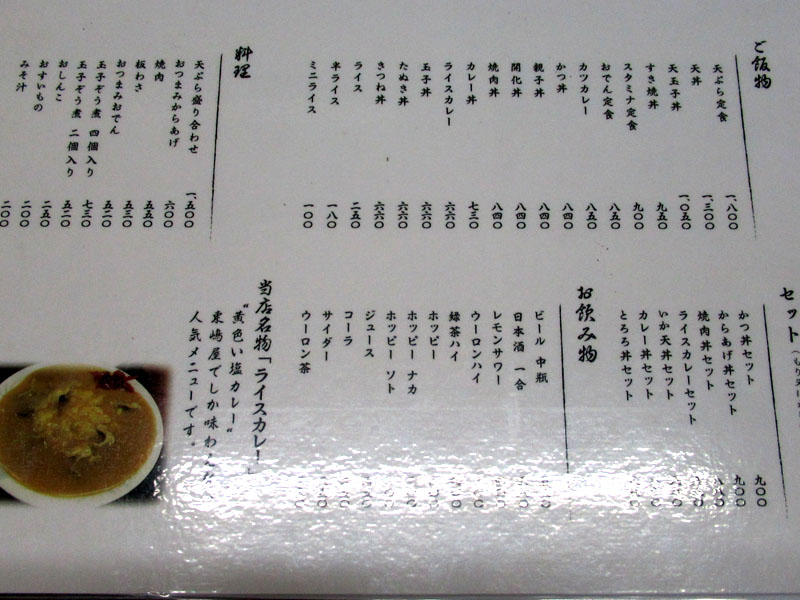 ご飯物
天ぷら定食 一、八〇〇
天丼 一、三〇〇
天玉子丼 一、〇五〇
すき焼丼 九五〇
スタミナ定食 九〇〇
おでん定食 八五〇
カツカレー 八五〇
かつ丼 八四〇
親子丼 八四〇
開化丼 八四〇
焼肉丼 八四〇
カレー丼 七三〇
ライスカレー 六六〇
玉子丼 六六〇
たぬき丼 六六〇
きつね丼 六六〇
ライス 二五〇
半ライス 一八〇
ミニライス 一〇〇
料理
天ぷら盛り合わせ 一、五〇〇
おつまみからあげ 六〇〇
焼肉 五五〇
板わさ 五三〇
おつまみおでん 五二〇
玉子ぞう煮 四個入り 七三〇
玉子ぞう煮 二個入り 五二〇
おしんこ 二五〇
おすいもの 二〇〇
みそ汁 二〇〇
セット
かつ丼セット 九〇〇
からあげ丼セット 九〇〇
焼肉丼セット
ライスカレーセット
いか天丼セット
カレー丼セット
とろろ丼セット
お飲み物
ビール 中瓶
日本酒 一合
レモンサワー
ウーロンハイ
緑茶ハイ
ホッピー
ホッピー ナカ
ホッピー ソト
ジュース
コーラ
サイダー
ウーロン茶
当店名物「ライスカレー」
"黄色い塩カレー"
東嶋屋でしか味わえない
人気メニューです。